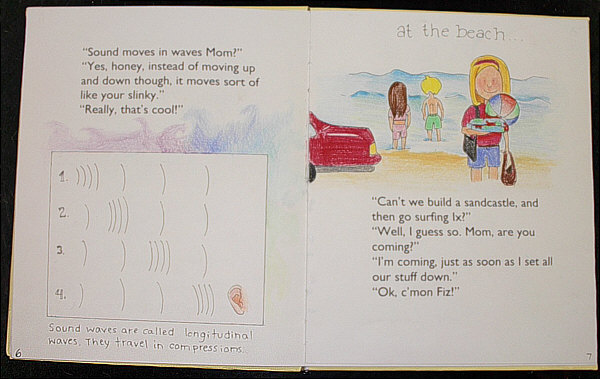 "Sound moves in waves Mom?"
"Yes, honey, instead of moving up
and down though, it moves sort of
like your slinky."
"Really, that's cool!"
1.
2.
3.
4.
Sound waves are called longitudinal
waves. They travel in compressions.
6
at the beach...
"Can't we build a sandcastle, and
then go surfing Ix?"
"Well, I guess so. Mom, are you
coming?"
"I'm coming, just as soon as I set all
our stuff down."
"Ok, c'mon Fiz!"
7